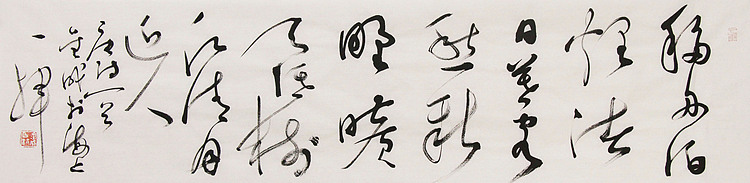 移舟泊
煙渚
日暮客
愁新
野曠
天低樹
江清月
近人
唐诗一首